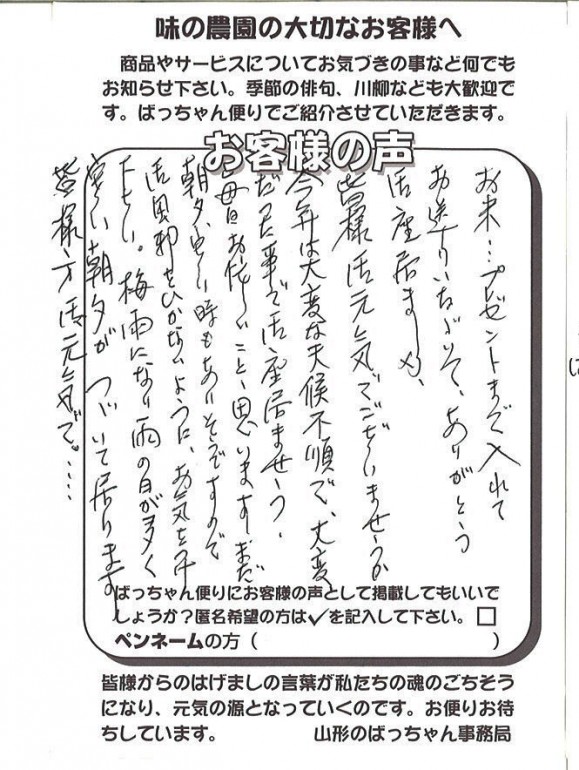 味の農園の大切なお客様へ
商品やサービスについてお気づきの事など何でも
お知らせ下さい。季節の俳句、川柳なども大歓迎で
す。ばっちゃん便りでご紹介させていただきます。
お客様の声
お米…プレゼントまで入れて
お送りいただいて、ありがとう
御座居ました、
皆様御元気でございませうか
今年は大変な天候不順で、大変
だった事で御座居ませう。
毎日お忙しいことと思いますまだ
朝夕寒い時もありそうですので
御風邪をひかないように、お気をつけ
下さい。梅雨になり雨の日が多く
寒い朝夕がつづいて居ります
皆様方御元気で。‥‥
ばっちゃん便りにお客様の声として掲載してもいいで
しょうか？匿名希望の方は✓を記入して下さい。□
ペンネームの方（　　　）
皆様からのはげましの言葉が私たちの魂のごちそう
になり、元気の源となっていくのです。お便りお待
ちしています。　山形のばっちゃん事務局